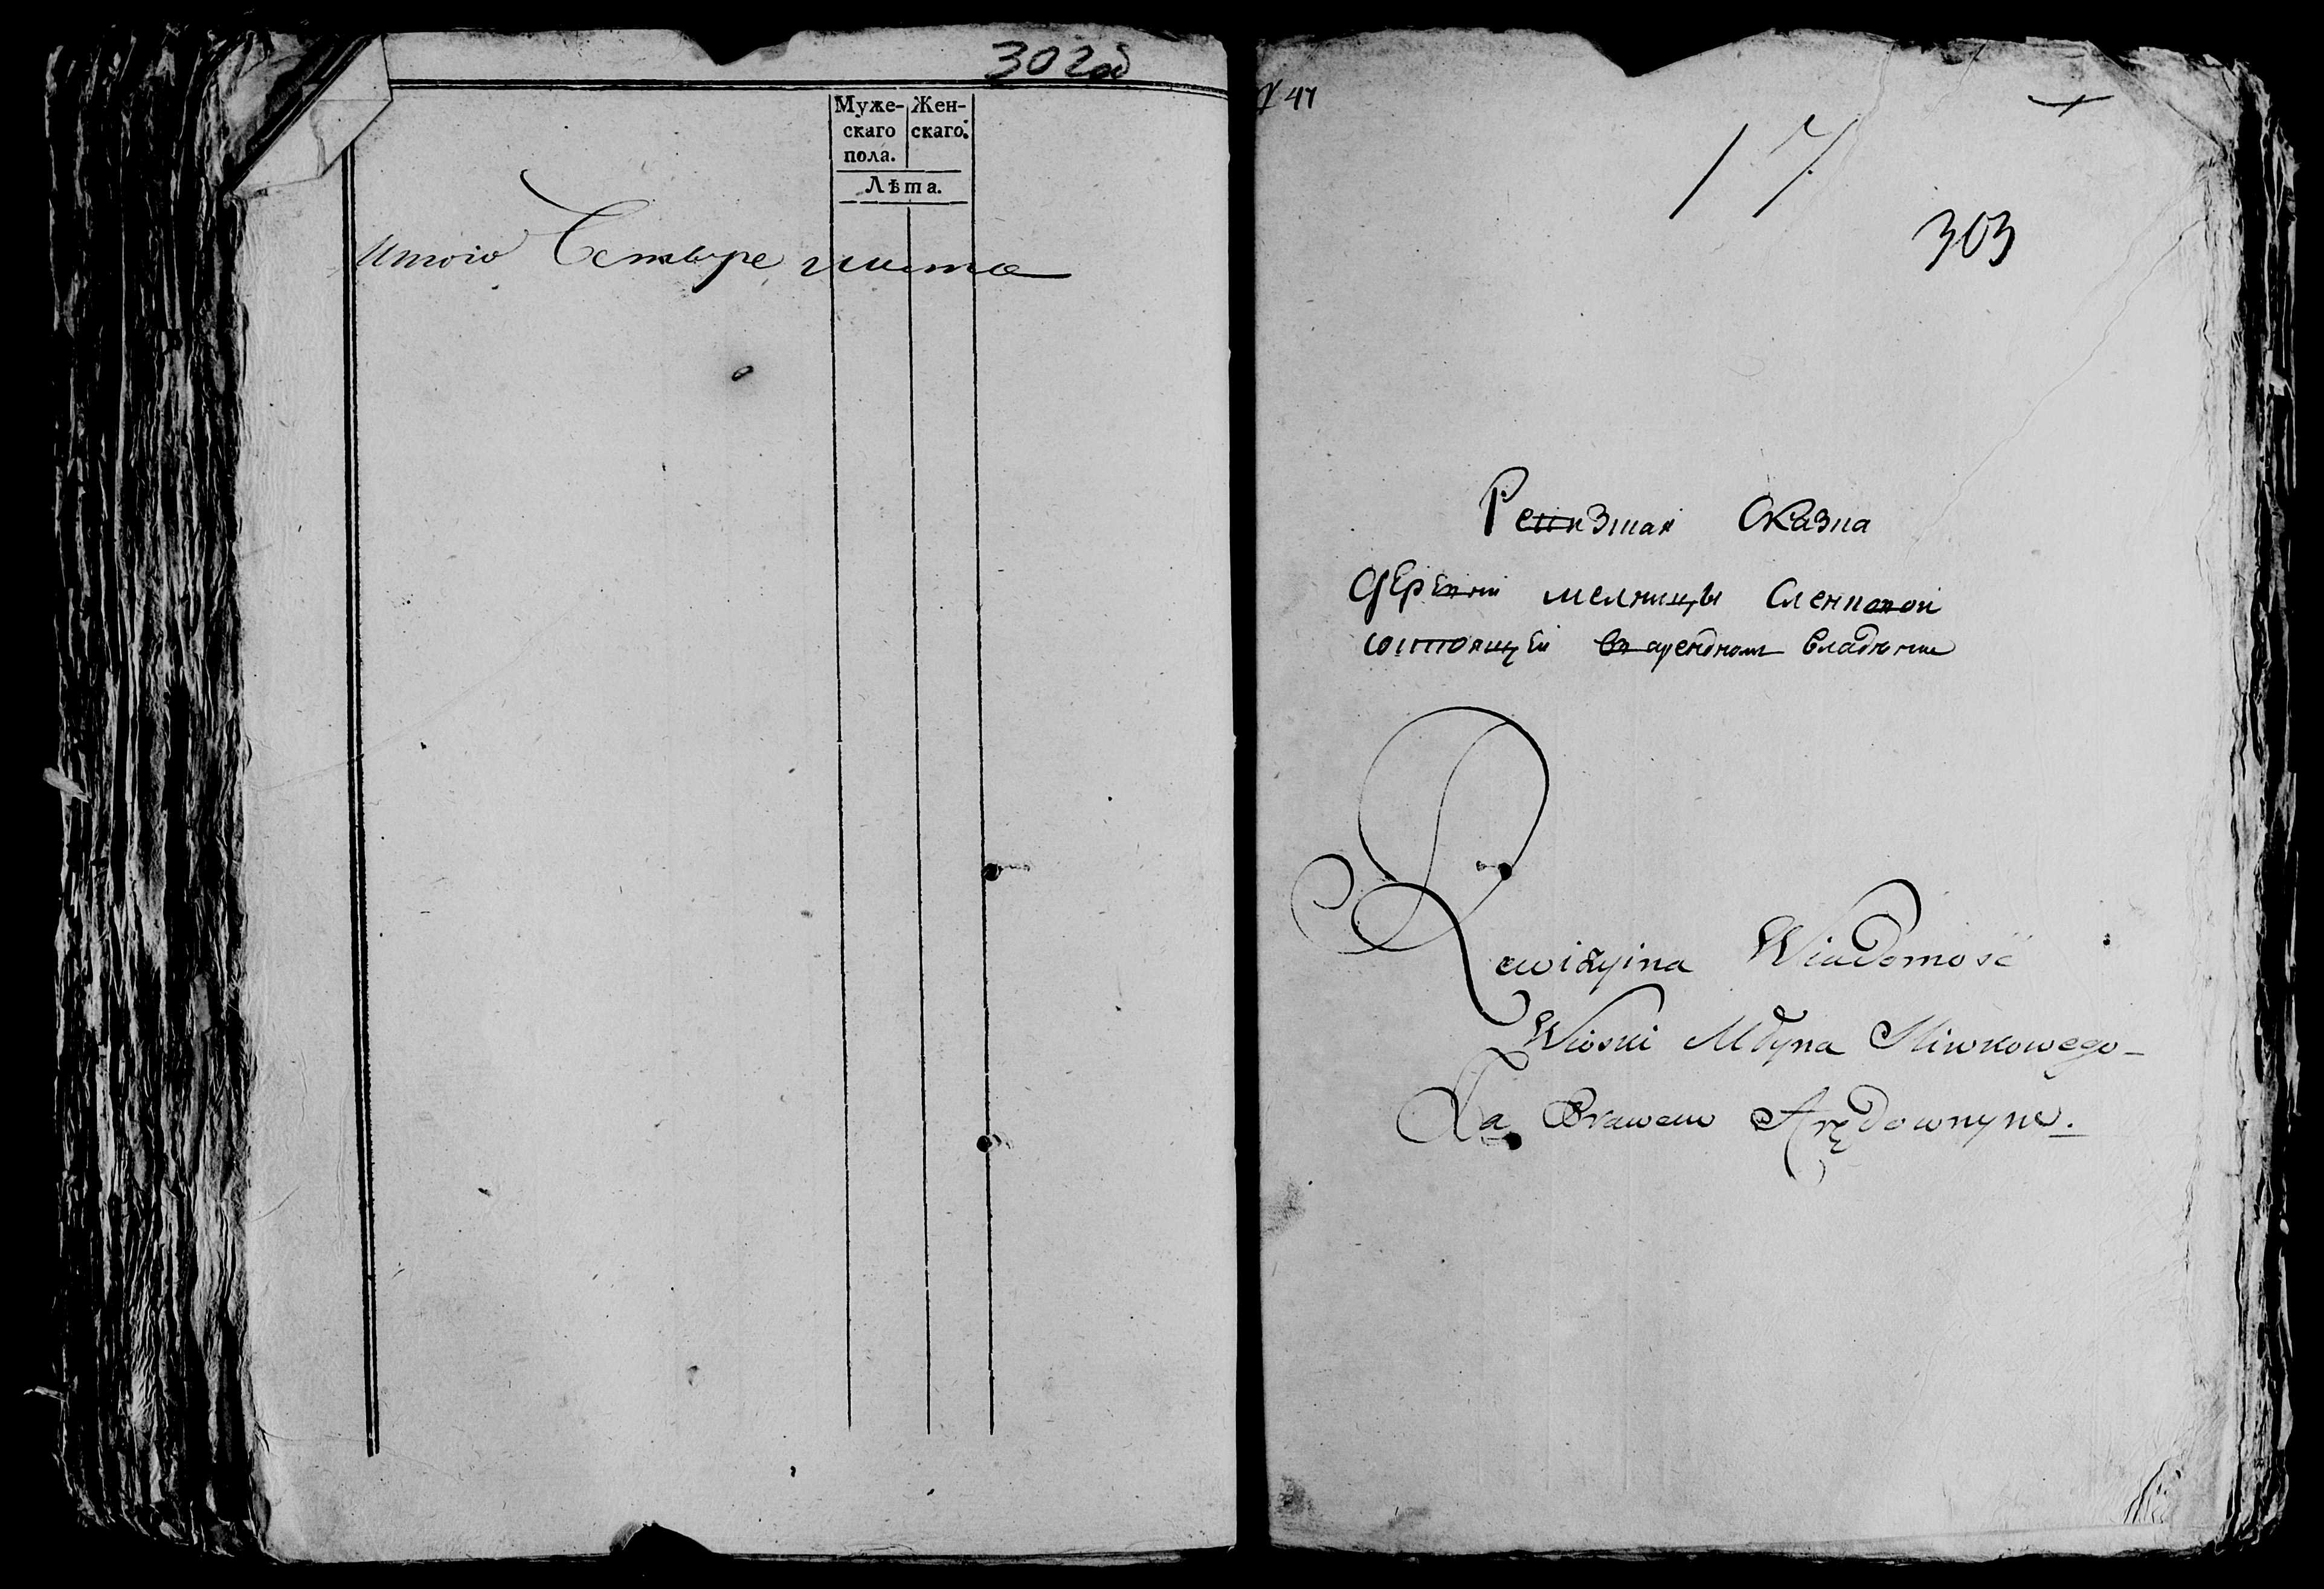 302 об
Муже-
скаго
пола.
Жен-
скаго.
Лѣта.
Итого Четыре листа
№ 47
17
303
Ревизная Сказка
деревни мелницы
состоящей въ арендномъ владении
Rewizyina Wiadomość
Wioski Młyna Sliwkowego
Za Prawem Arędownym.